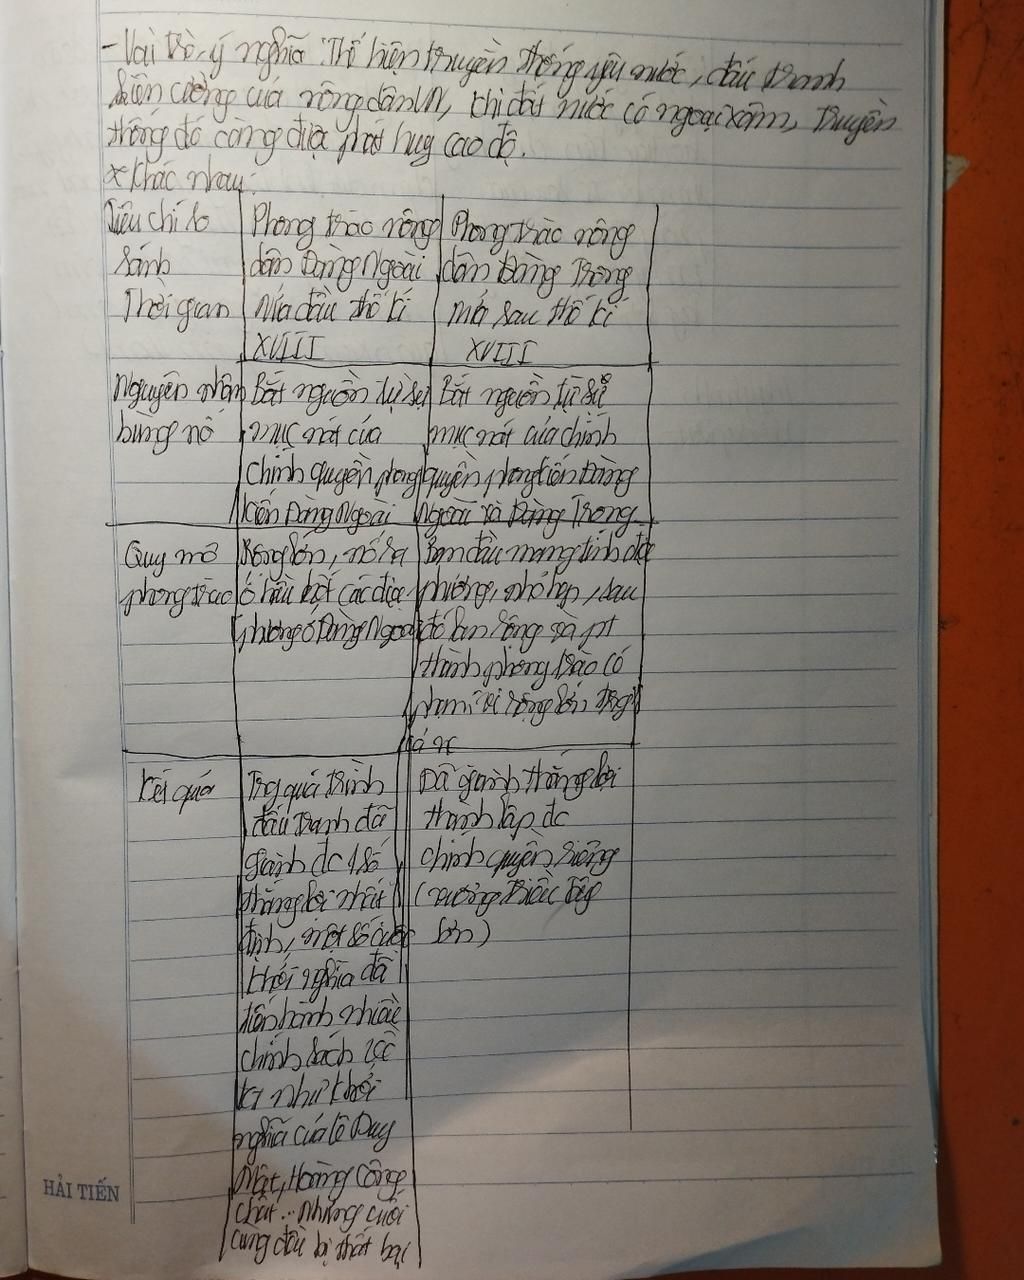 - Vai trò, ý nghĩa: Thể hiện truyền thống yêu nước, đấu tranh
kiên cường của nông dân VN, khi đất nước có ngoại xâm, truyền
thống đó càng được phát huy cao độ.
* Khác nhau:
Tiêu chí so
sánh
Thời gian
Phong trào nông
dân Đàng Ngoài
nửa đầu thế kỉ
XVIII
Phong trào nông
dân Đàng Trong
nửa sau thế kỉ
XVIII
Nguyên nhân
bùng nổ
Bắt nguồn từ sự
mục nát của
chính quyền phong
kiến Đàng Ngoài
Bắt nguồn từ sự
mục nát của chính
quyền phong kiến Đàng
Ngoài và Đàng Trong
Quy mô
phong trào
Rộng lớn, nổ ra
ở hầu hết các địa
phương ở Đàng Ngoài
Ban đầu mang tính địa
phương, nhỏ hẹp, sau
đó lan rộng và pt
thành phong trào có
phạm vi rộng lớn trg
cả nc
Kết quả
Trg quá trình
đấu tranh đã
giành đc 1 số
thắng lợi nhất
định, một số cuộc
khởi nghĩa đã
tiến hành nhiều
chính sách
như khởi
nghĩa của Lê Duy
Mật, Hoàng Công
Chất... nhưng cuối
cùng đều bị thất bại
Đã giành thắng lợi
thành lập đc
chính quyền riêng
(vương triều Tây
Sơn)
HẢI TIẾN